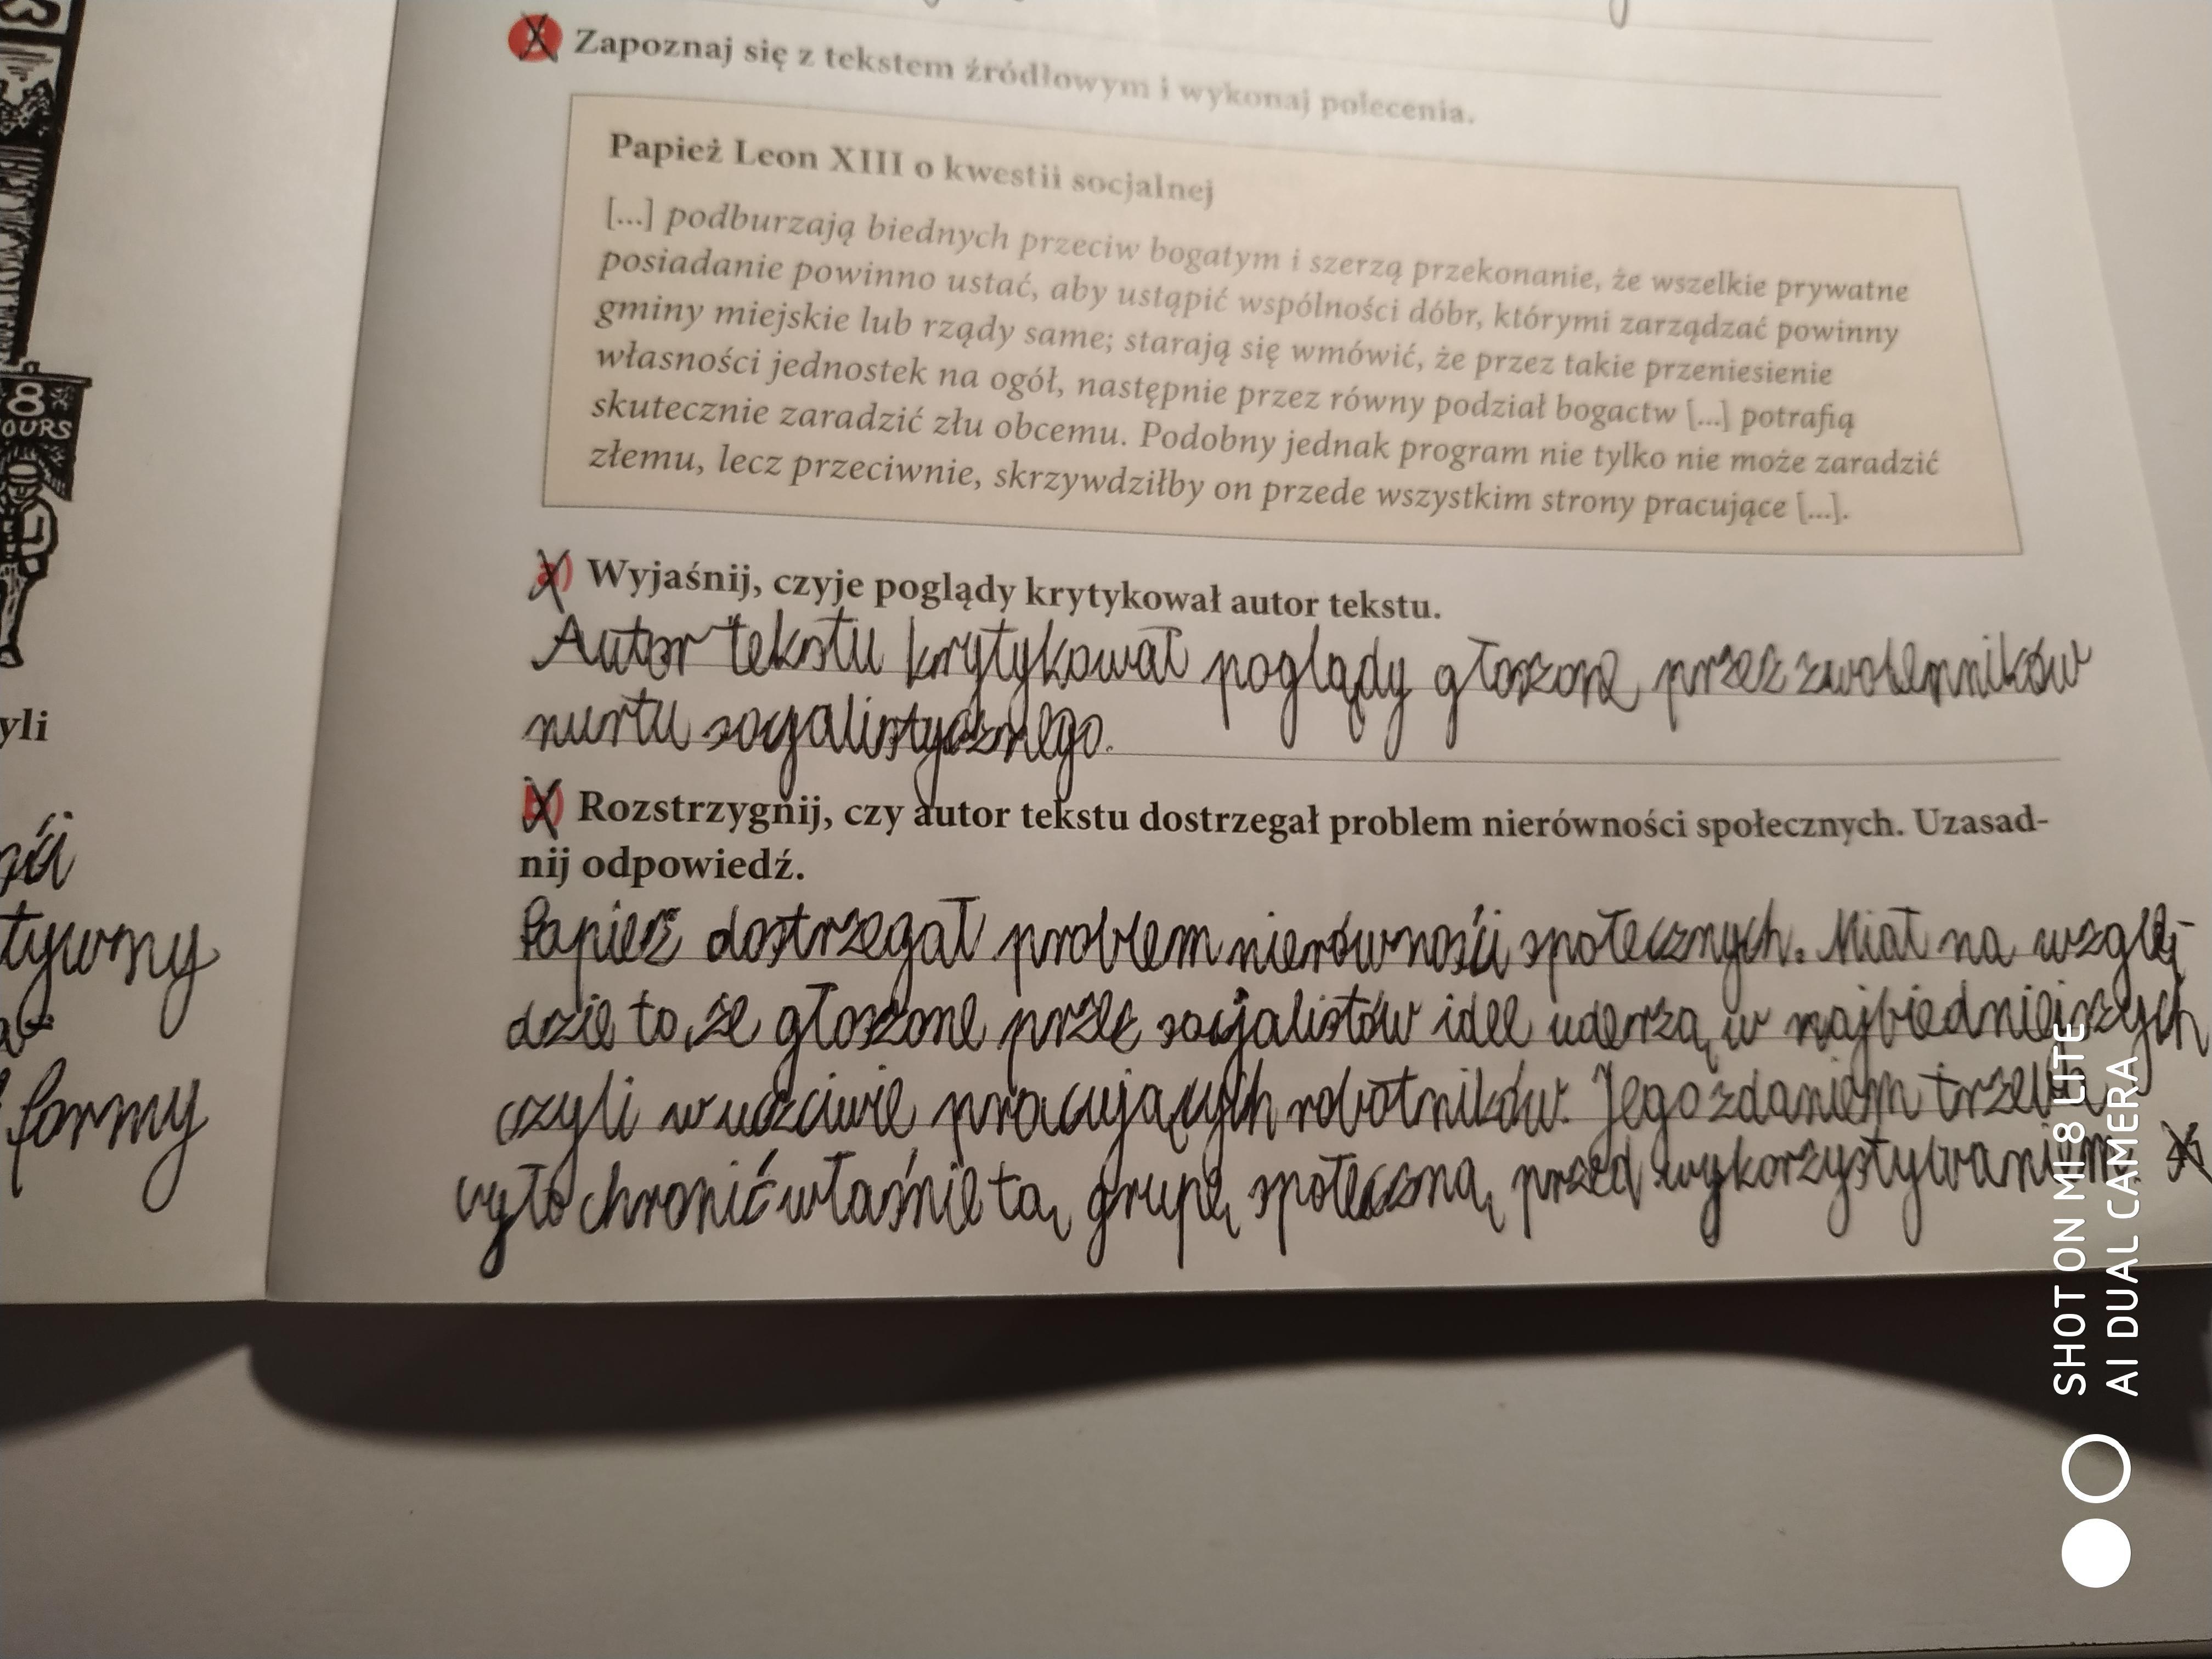 8
OURS
yli
tywny
formy
Zapoznaj się z tekstem źródłowym i wykonaj polecenia.
Papież Leon XIII o kwestii socjalnej
[...] podburzają biednych przeciw bogatym i szerzą przekonanie, że wszelkie prywatne
posiadanie powinno ustać, aby ustąpić wspólności dóbr, którymi zarządzać powinny
gminy miejskie lub rządy same; starają się wmówić, że przez takie przeniesienie
własności jednostek na ogół, następnie przez równy podział bogactw [...] potrafią
skutecznie zaradzić złu obcemu. Podobny jednak program nie tylko nie może zaradzić
złemu, lecz przeciwnie, skrzywdziłby on przede wszystkim strony pracujące [...].
a) Wyjaśnij, czyje poglądy krytykował autor tekstu.
Autor tekstu krytykował poglądy głoszone przez zwolenników
nurtu socjalistycznego.
b) Rozstrzygnij, czy autor tekstu dostrzegał problem nierówności społecznych. Uzasad-
nij odpowiedź.
Papież dostrzegał problem nierówności społecznych. Miał na wzglę-
dzie to, że głoszone przez socjalistów idee uderzą w najbiedniejszych
czyli w uczciwie pracujących robotników. Jego zdaniem trzeba
było chronić właśnie tą grupę społeczną przed wykorzystywaniem.
SHOT ON MI 8 LITE
AI DUAL CAMERA